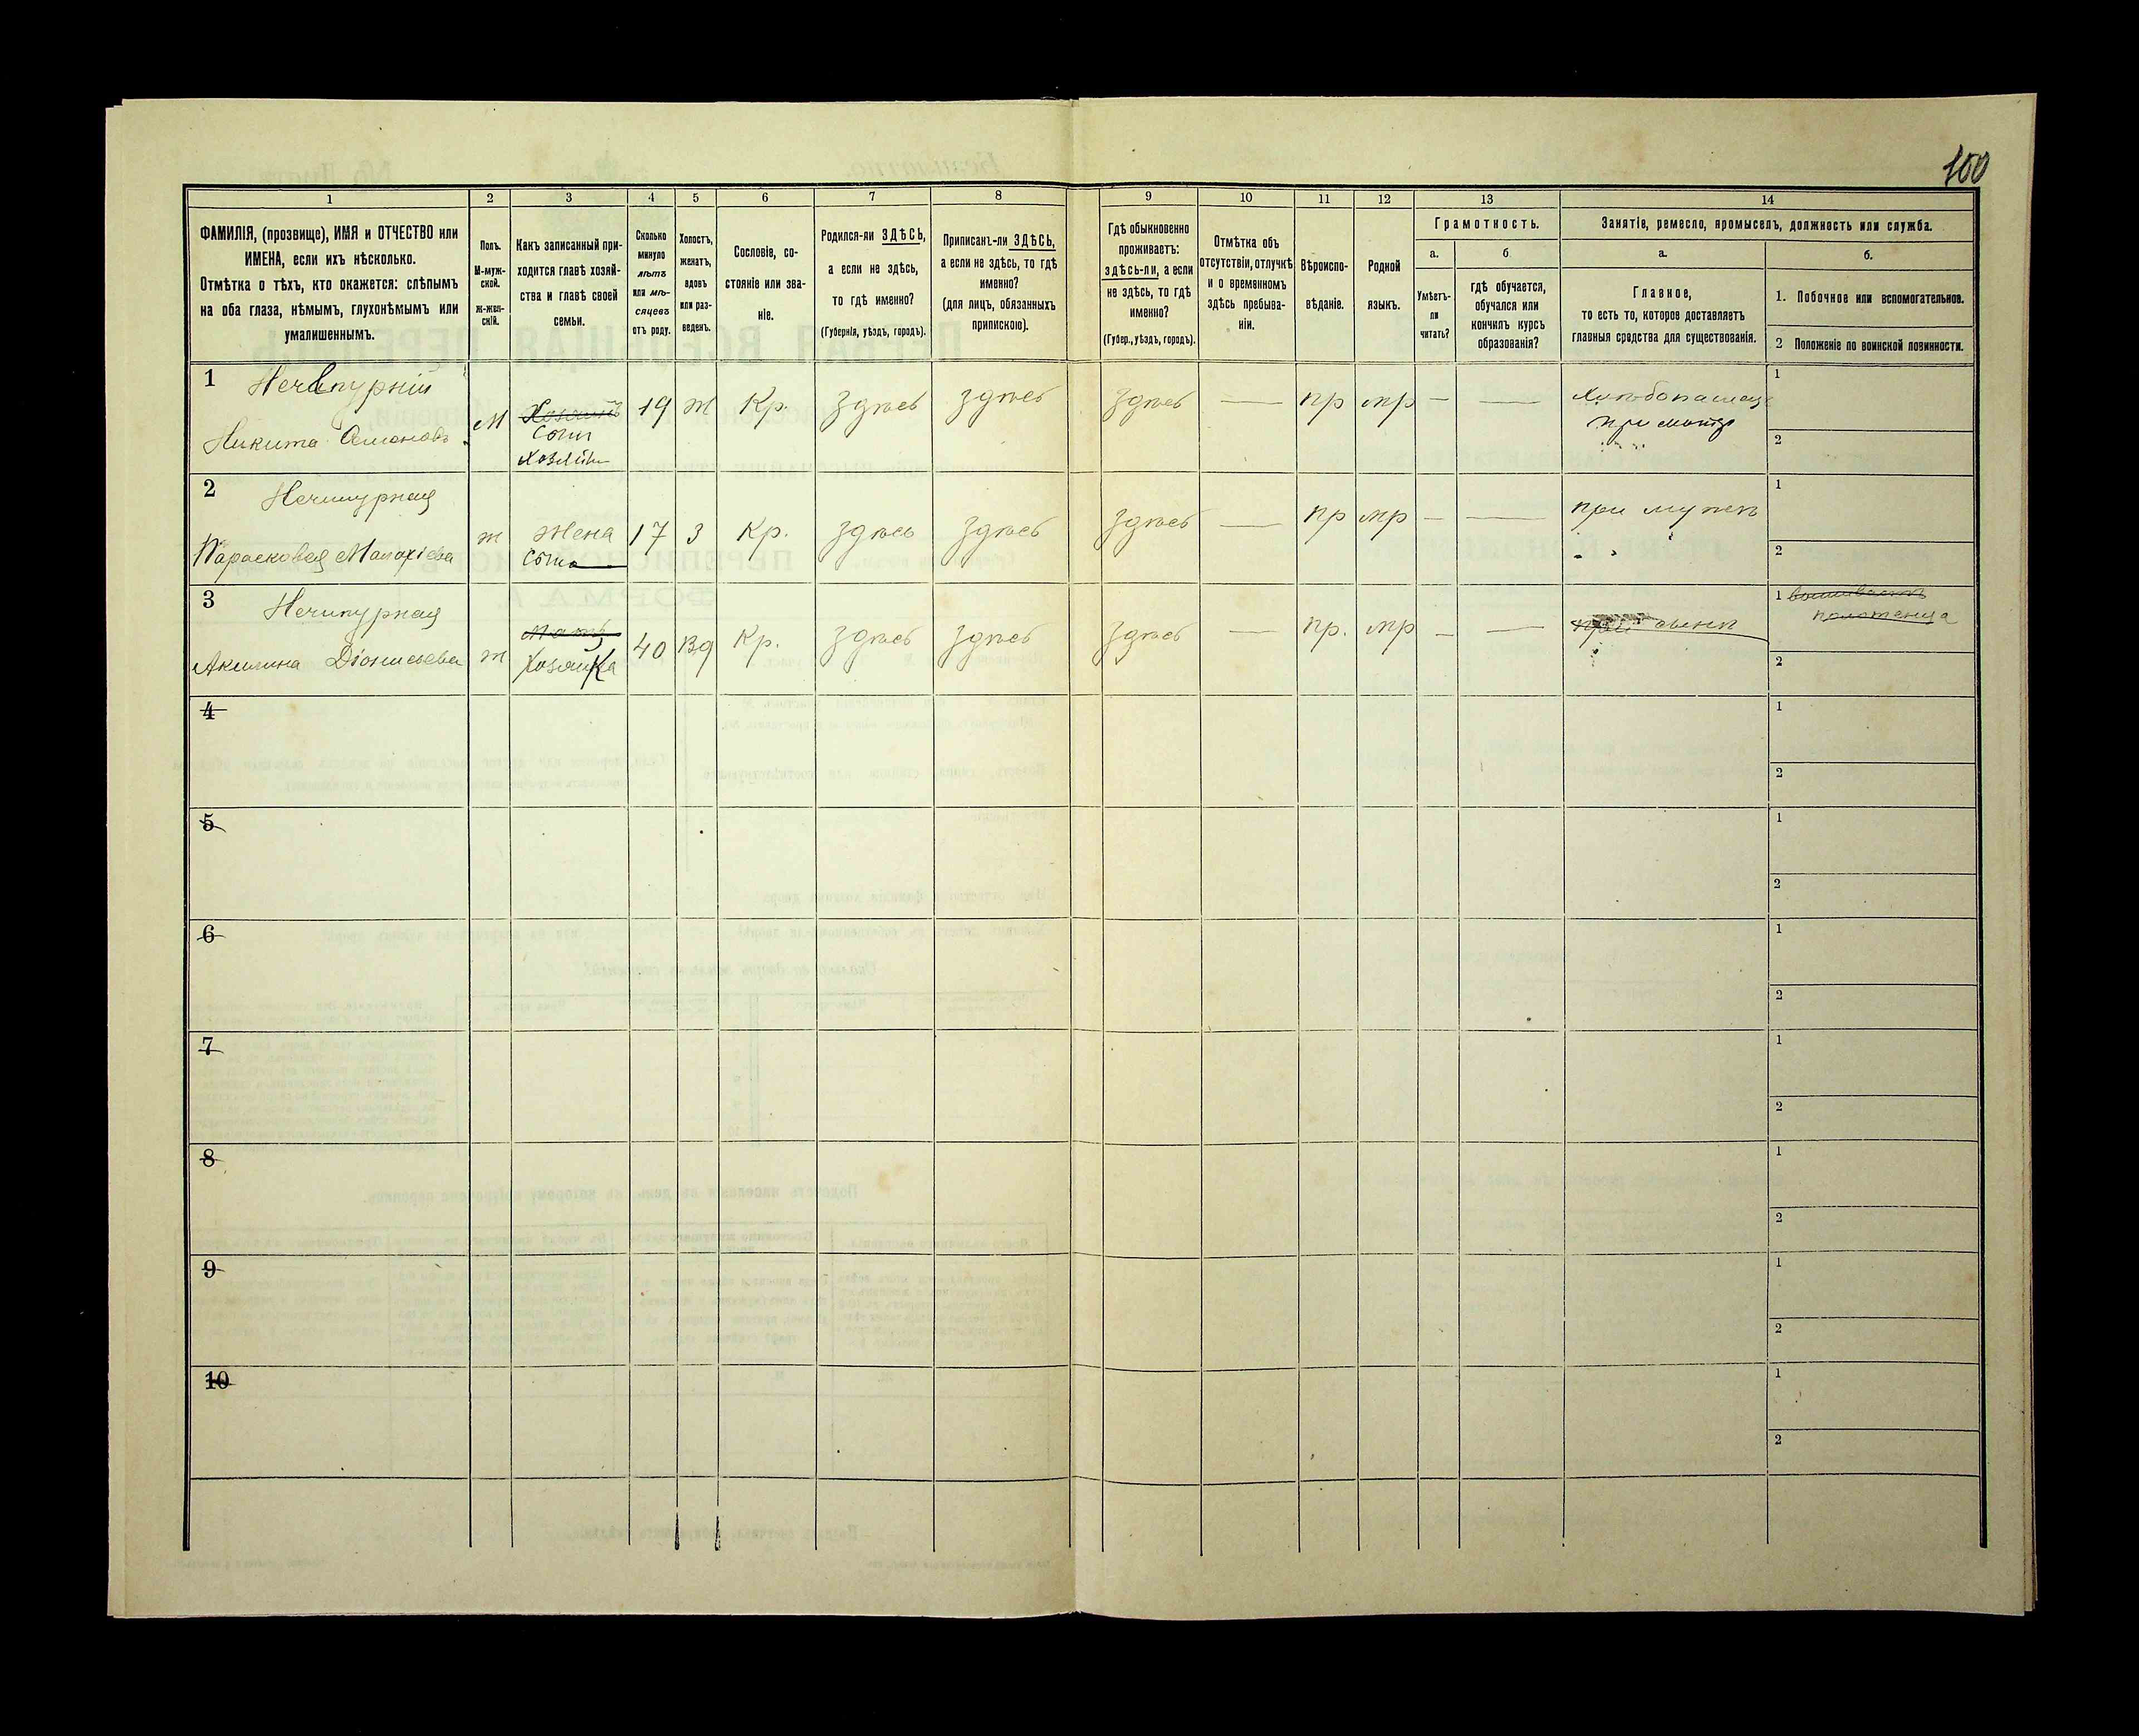 100
1 2 3 4 5 6 7 8 9 10 11 12 13 14
ФАМИЛІЯ, (прозвище), ИМЯ и ОТЧЕСТВО или
ИМЕНА, если ихъ нѣсколько.
Отмѣтка о тѣхъ, кто окажется: слѣпымъ
на оба глаза, нѣмымъ, глухонѣмымъ или
умалишеннымъ.
Полъ.
М-муж-
ской.
Ж-жен-
скій.
Какъ записанный при-
ходится главѣ хозяй-
ства и главѣ своей
семьи.
Сколько
минуло
лѣтъ
или мѣ-
сяцевъ
отъ роду.
Холостъ,
женатъ,
вдовъ
или раз-
веденъ.
Сословіе, со-
стояніе или зва-
ніе.
Родился-ли ЗДѢСЬ,
а если не здѣсь,
то гдѣ именно?
(Губернія, уѣздъ, городъ).
Приписанъ-ли ЗДѢСЬ,
а если не здѣсь, то гдѣ
именно?
(для лицъ, обязанныхъ
припискою).
Гдѣ обыкновенно
проживаетъ:
здѣсь-ли, а если
не здѣсь, то гдѣ
именно?
(Губер., уѣздъ, городъ).
Отмѣтка объ
отсутствіи, отлучкѣ
и о временномъ
здѣсь пребыва-
ніи.
Вѣроиспо-
вѣданіе.
Родной
языкъ.
Грамотность.
а.
Умѣетъ-
ли
читать?
б
гдѣ обучается,
обучался или
кончилъ курсъ
образованія?
Занятіе, ремесло, промыселъ, должность или служба.
а.
Главное,
то есть то, которое доставляетъ
главныя средства для существованія.
б.
1. Побочное или вспомогательное.
2 Положеніе по воинской повинности.
1 Нечипурній
Никита
М
Хозяинъ
Сынъ
Хозяйки
19 Ж Кр. здѣсь здѣсь здѣсь — пр мр — —
Хлѣбопашецъ
при матери
1
2
2 Нечипурная
Парасковея Малахіева
ж
Жена
Сына
17 З Кр. здѣсь здѣсь здѣсь — пр мр — —
при мужѣ
1
2
3 Нечипурная
Акилина Діонисіева
ж
Мать
Хозяйка
40 Вд Кр. здѣсь здѣсь здѣсь — пр. мр — —
при сынѣ
1 вышиваетъ
полотенца
2
4
1
2
5
1
2
6
1
2
7
1
2
8
1
2
9
1
2
10
1
2